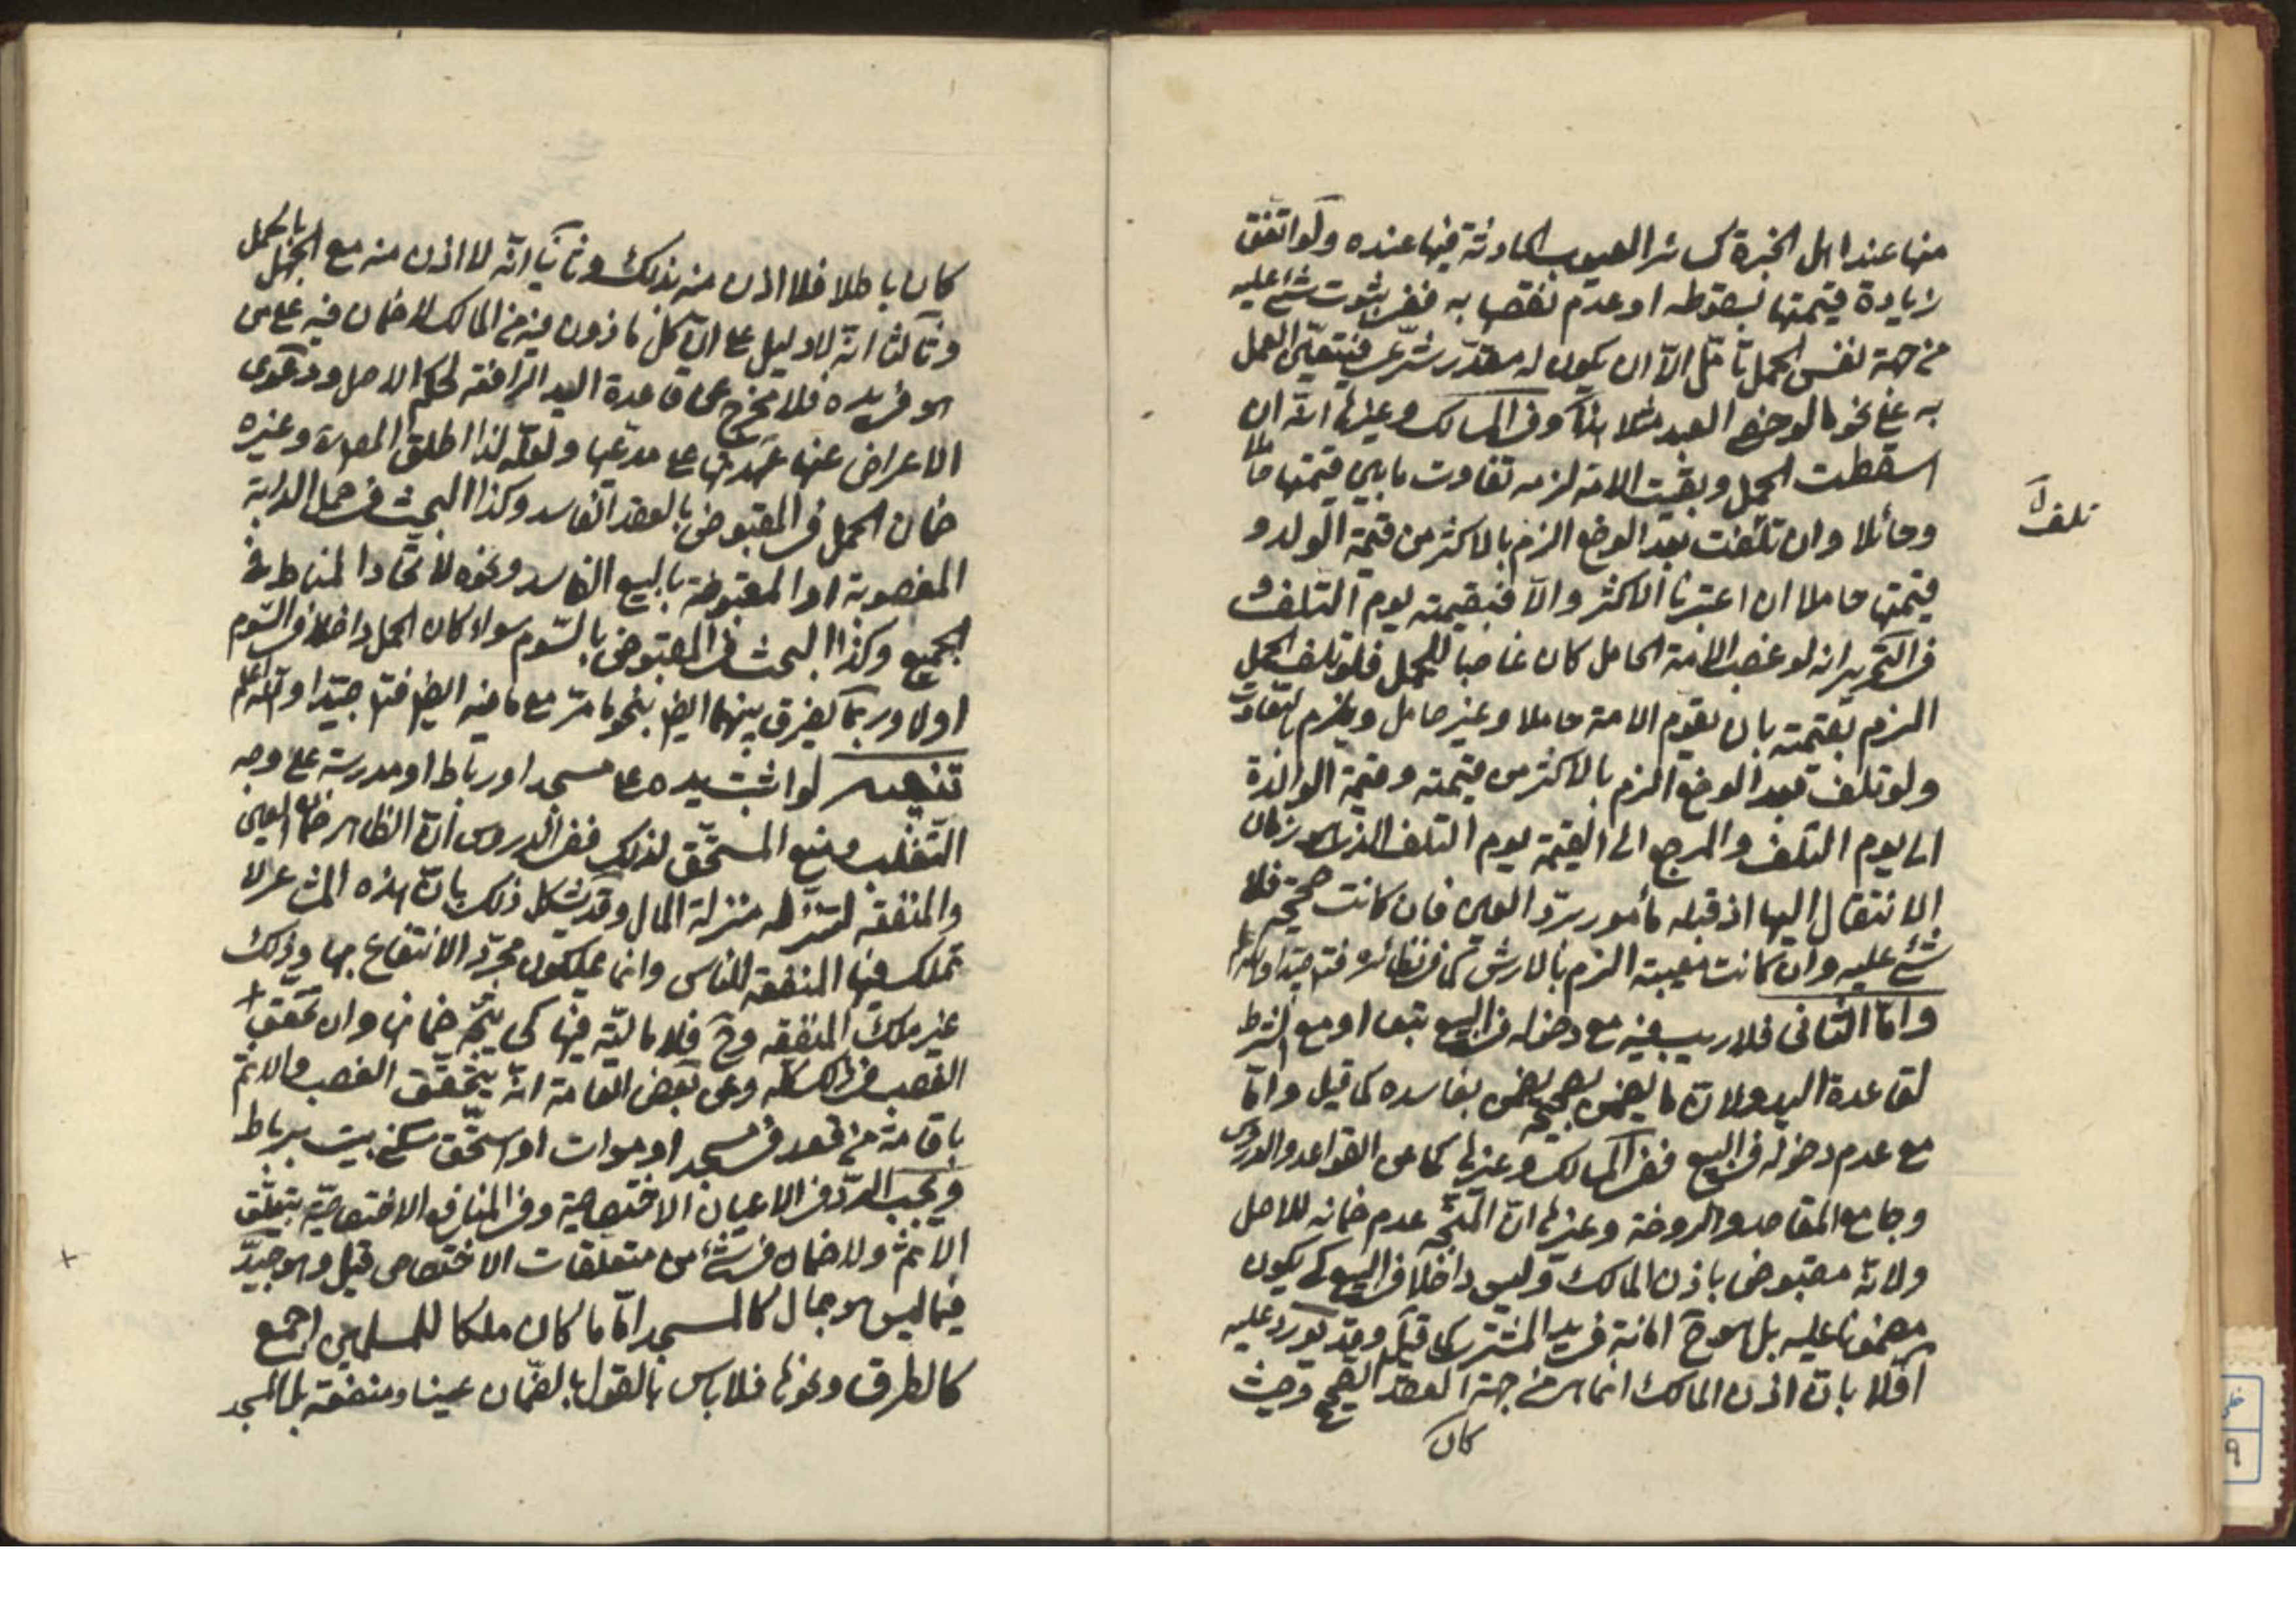 منها عند اهل الخبرة كسائر العيوب الحادثة فيها عنده ولو اتفق
زيادة قيمتها بسقوطه او عدم نقصها به ففى ثبوت شئ عليه
من جهة نفس الحمل تأمّل الّا ان يكون له مقدّر شرعى فيتعيّن العمل
به على نحو ما لو خصى العبد مثلا هذا وفى المسالك وغيرها انّه ان
اسقطت الحمل وبقيت الامة لزمه تفاوت ما بين قيمتها حاملا
وحائلا وان تلفت بعد الوضع الزم بالاكثر من قيمة الولد و
قيمتها حاملا ان اعتبرنا الاكثر والّا فبقيمته يوم التلف و
فى التحرير انه لو غصب الامة الحامل كان غاصبا للحمل فلو تلف الحمل
الزم بقيمته بان تقوم الامة حاملا وغير حامل ويلزم بالتفاوت
ولو تلف بعد الوضع الزم بالاكثر من قيمته وقيمة الوالدة
الى يوم التلف والمرجع الى القيمة يوم التلف الذى هو زمان
الانتقال اليها اذ قبله مأمور بردّ العين فان كانت صحيحة فلا
شئ عليه وان كانت معيبة الزم بالارش كما فى نظائره فتم جيّدا والله اعلم
وامّا الثانى فلا ريب فيه مع دخوله فى البيع تبعا او مع الشرط
لقاعدة اليد ولانّ ما يضمن بصحيحه يضمن بفاسده كما قيل وامّا
مع عدم دخوله فى البيع ففى المسالك وغيرها كما عن القواعد والدروس
وجامع المقاصد والروضة وغيرها انّ المتّجه عدم ضمانه للاصل
ولانّه مقبوض باذن المالك وليس داخلا فى البيع كى يكون
مضمونا عليه بل هو ح امانة فى يد المشترى كما قيل وقد يورد عليه
اوّلا بانّ اذن المالك انما هى من جهة العقد الصحيح وحيث
كان
تلف
كان باطلا فلا اذن منه بذلك وثانيا انّه لا اذن منه مع الجهل بالحمل
وثالثا انّه لا دليل على انّ كل ماذون فيه من المالك لا ضمان فيه على من
هو فى يده فلا مخرج عن قاعدة اليد الرافعة لحكم الاصل ودعوى
الاعراض عنها عهدتها على مدّعيها ولعلّه لذا اطلق المصنف وغيره
ضمان الحمل فى المقبوض بالعقد الفاسد وكذا البحث فى حمل الدابة
المغصوبة او المقبوضة بالبيع الفاسد ونحوه لاتّحاد المناط فى
الجميع وكذا البحث فى المقبوض بالسّوم سواء كان الحمل داخلا فى السّوم
اولا وربّما يفرق بينهما ايضا بنحو ما مرّ مع ما فيه ايضا فتم جيّدا والله اعلم
تنبيه لو اثبت يده على مسجد او رباط او مدرسة على وجه
التغلب ومنع المستحّق لذلك ففى الدروس انّ الظاهر ضمان العين
والمنفعة لتنزّله منزلة المال وقد يشكل ذلك بانّ هذه المشاعر لا
تملك فيها المنفعة للناس وانما يملكون مجرّد الانتفاع بها وذلك
غير ملك المنفعة وح فلا ماليّة فيها كى يتّجه ضمانها وان تحقق
الغصب فى ذلك كلّه وعن بعض العامة انّه يتحقّق الغصب والاثم
باقامة من قعد فى مسجد او موات او استحّق سكنى بيت برباط
ويجب الردّ فى الاعيان الاختصاصية وفى المنافع الاختصاصيّة يتعلّق
الاثم ولا ضمان فى شئ من متعلقات الاختصاص قيل وهو جيّد
فيما ليس هو بمال كالمسجد امّا ما كان ملكا للمسلمين اجمع
كالطرق ونحوها فلا باس بالقول بالضّمان عينا ومنفعة بل المسجد